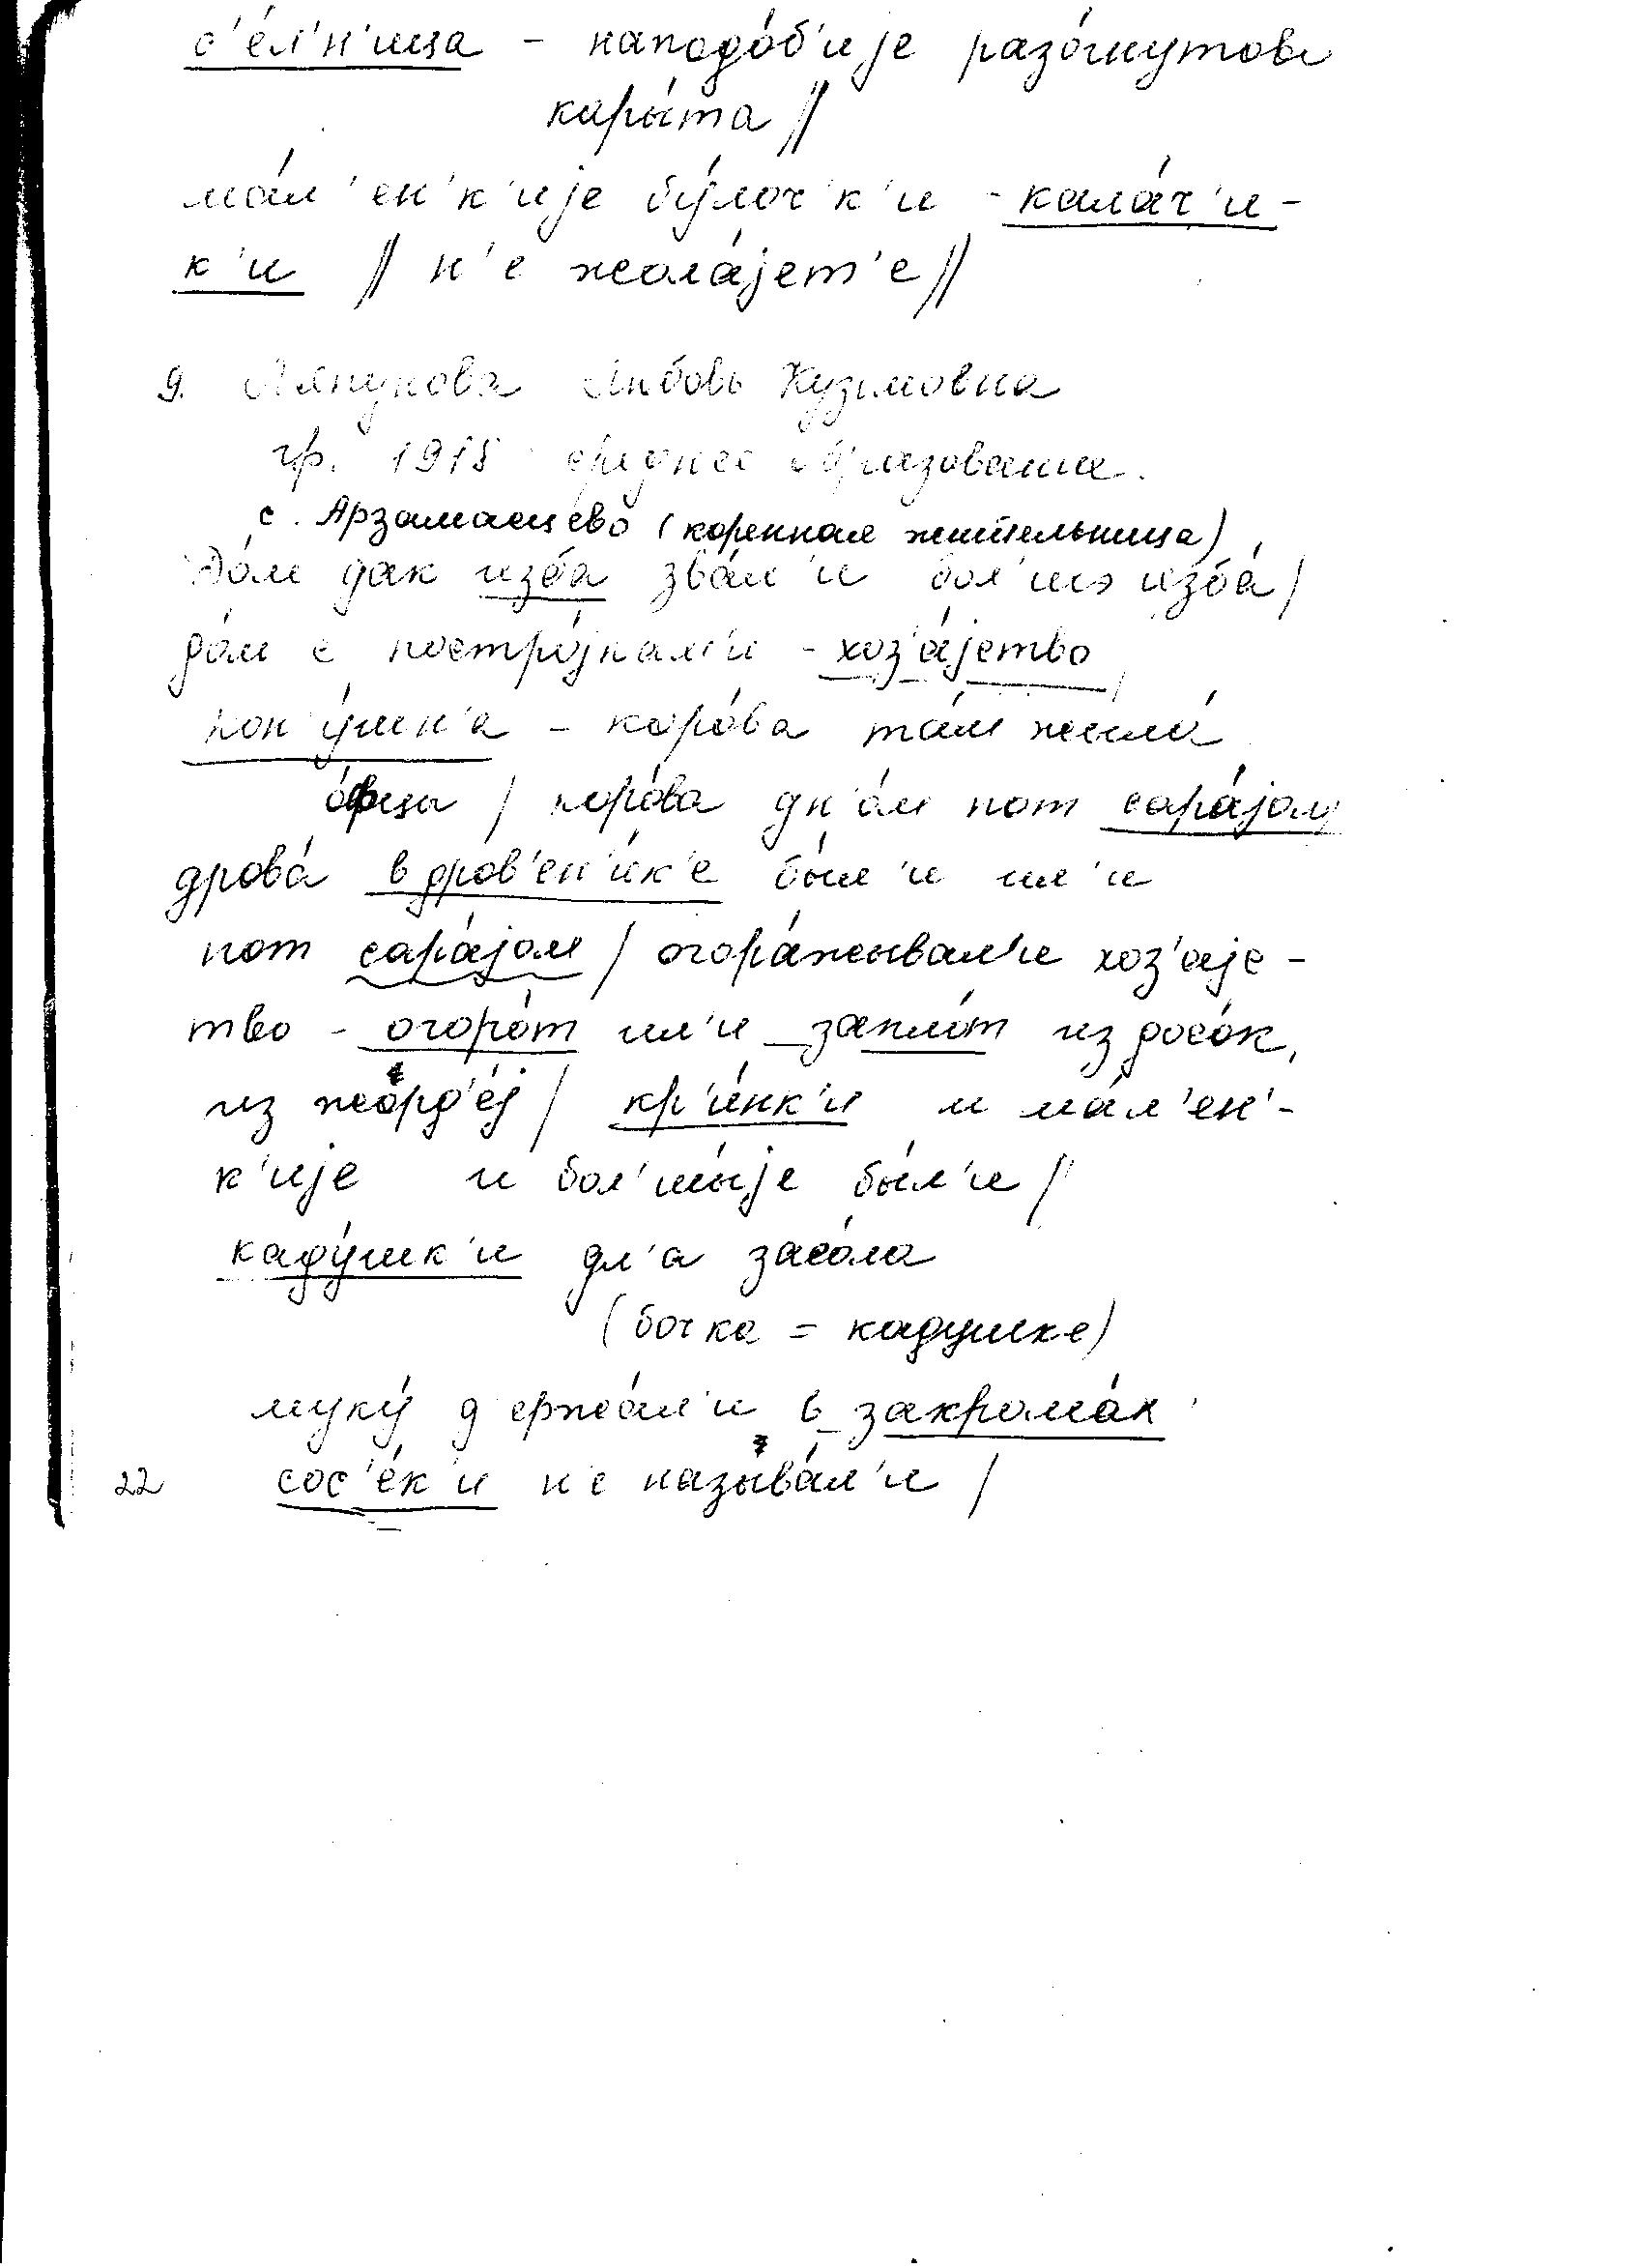 с'е́л'н'ица – наподо́б'иjе разо́гнутово
коры́та //
ма́л'ен'к'иjе бу́лоч'к'и – кала́ч'и-
к'и // н'е жола́jет'е //
9. Любовь Кузьмовна
г.р. 1915 среднее образование.
с. Арзамасцево (коренная жительница)
До́м дак изба́ зва́л'и бол'шэ изба́ /
до́м с постро́jкам'и – хоз'а́jство
кон'у́шн'а – коро́ва та́м жыла́
о́фцы / коро́ва дн'о́м пот сара́jом
дрова́ в дров'ен'и́к'е бы́л'и ил'и
пот сара́jом / огора́жывал'и хоз'аjс-
тво – огоро́т ил'и запло́т из досо́к,
из жэрд'е́j / кр'и́нк'и и ма́л'ен'-
к'иjе и бол'шы́jе бы́л'и /
каду́шк'и дл'а засо́ла
(бочка = кадушке)
муку́ д'ержа́л'и в закрома́х
22 сос'е́к'и н'е называ́л'и /